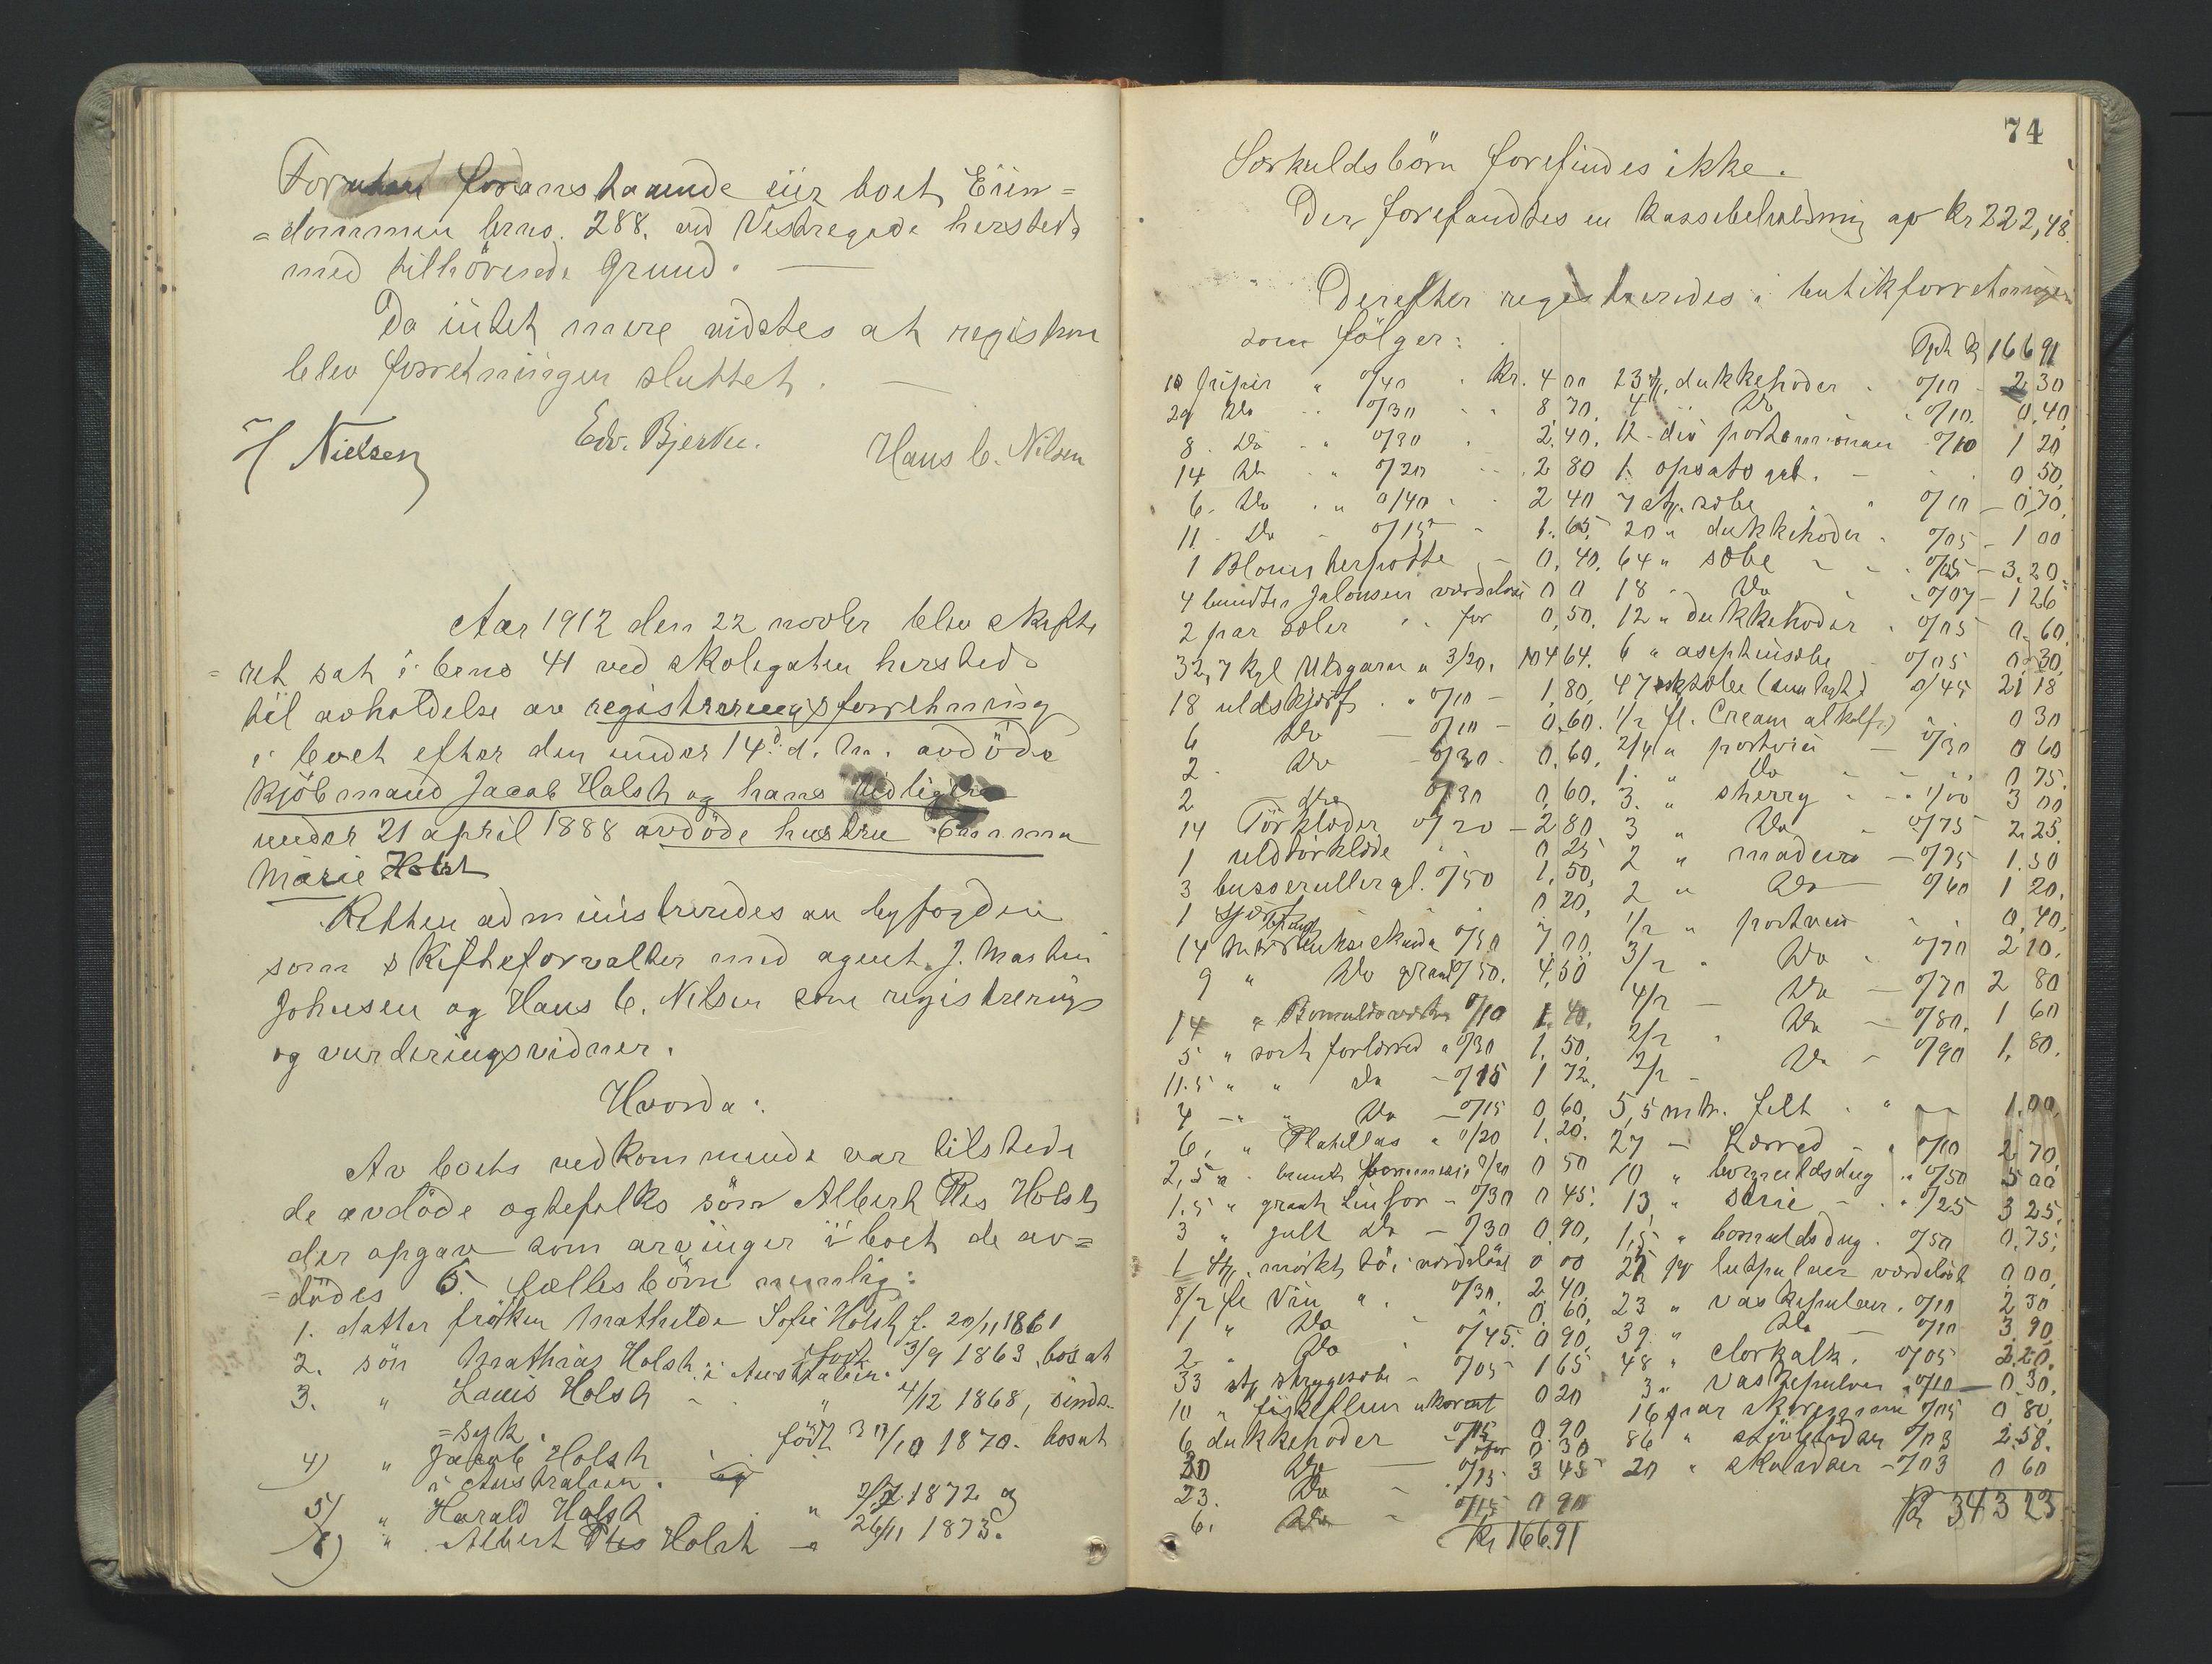 Foruten foranstaaende eier boet Eien=
=dommen brno. 288. ved Vestregade hersteds
med tilhörende Grund. —
Da intet mere vidstes at registrere
blev forretningen sluttet. —
H Nielsen Edv. Bjerke. Hans C. Nilsen
Aar 1912 den 22 novbr blev skifte
=ret sat i brno 41 ved skolegaten hersteds
til avholdelse av registreringsforretning
i boet efter den under 14.d d. m. avdöde
Kjöbmand Jacob Holst og hans tidligere
under 21 april 1888 avdöde hustru Emma
Marie Holst
Retten administreredes av byfogden
som skifteforvalter med agent J. Martin
Johnsen og Hans C. Nilsen som registrerings
og vurderingsvidner.
Hvorda:
Av boets vedkommende var tilstede
de avdöde egtefolks sön Albert Ries Holst
der opgav som arvinger i boet de av=
=dödes 6 fælles börn nemlig:
1. datter fröken Mathilde Sofie Holst f. 20/11 1861
2. sön Mathias Holst födt 3/9 1863, bosat
i Australien.
3. " Louis Holst - " 4/12 1868, sinds-
=syk.
4) " Jacob Holst födt 30/10 1870. bosat
i Australien.
5) " Harald Holst " 2/7 1872 og
6) " Albert Ries Holst - 26/11 1873.
74
Særkuldsbörn forefindes ikke.
Der forefandtes en kassebeholdning af Kr 222,48.
Derefter registreredes i butikforretningen
som fölger:
Kr 16691
10 " 0/40 Kr. 4 00
29 Do " 0/30 8,70.
8. Do " 0/30 2.40.
14 Do " 0/20 2 80
6. Do " 0/40 2 40
11 Do 0/15 1.65
1 Blomsterpotte - 0,40.
4 bundter Jalousier værdiløse 0 0
2 par soler for 0,50.
32,7 kgl Uldgarn a 3/20. 104 64.
18 uldskjærf " 0/10 - 1,80.
6 Do - 0/10 - 0.60.
2 Do - 0/30 - 0,60.
2 dto 0/30 0,60.
14 Törklæder 0/20 - 2 80
1 uldtörklæde 0 25
3 busseruller gl. 0/50 1,50,
1 0 20,
14 mtr 0/50 7,00.
9 " Do graat 0/50. 4,50
14 " 0/10 1.40.
5 " sort forlærred a 0/30 1,50.
11.5 " " do - 0/15 1 72.
4 - " " Do - 0/15 0,60,
6, " Platillas a 0/20 1.20.
2,5 " 0/20 0 50
1.5 " graat Linfor - 0/30 0 45.
3 " gult Do - 0/30 0,90,
1 stk. mörkt töi værdilöst 0 00
8/2 fl Vin " . 0/30. 2 40.
1 " Do 0,60.
2 " Do 0/45. 0 90.
33 stk strygesobe - 0/05 1 65
10 " 0 20
6 dukkehoder 0/15 0.90
20 Do - 0 30
23. Do - 0/15 3 45
6. Do - 0/15 0 90
Kr 166.91
23 stk. dukkehoder . 0/10 - 2 30
4 " Do " 0/10. 0,40
12 - div portemonnaer 0/10 1 20
1. opsats gul. - 0 50.
7 stk. sobe " 0/10 - 0,70,
20 " dukkehoder . 0/05 - 1 00
64 " sobe - - 0/05 - 3,20.
18 - Do - 0/07 - 1 26
12 " dukkehoder . 0/05 0.60.
6 " aseptinsobe 0/05 0,30.
0/45 21 18
1/2 fl. Cream alkolfri 0 30
2/4 " portvin - 0/30 0 60
1. " Do - - 0 75.
3. " sherry - - 1/00 3 00
3 " Do - 0/75 2 25.
2 " madeira - 0/75 1.50
2 " Do 0/60 1 20.
1/2 " portvin 0,40,
3/2 " Do . 0/70 2 10.
4/2 - Do - 0/70 2 80
2/2 " Do - 0/80. 1 60
2/2 - Do - 0/90 1, 80.
5,5 mtr. filt . " 1.00,
27 - Lærred - . 0/10 2 70
10 " bomuldsdug " 0/50 5 00
13, " - . 0/25 3 25.
1,5 " bomuldsdug . 0/50 0,75.
lutpulver værdilöst 0 00,
23 " vaskepulver . 0/10 2 30
39 " Do - 0/10 3.90
48 " clorkalk. 0/05
3 " vaskepulver " 0/10 - 0.30.
16 par skoremmer 0/05 0 80.
86 " 0/03 2.58.
20 " 0/03 0 60
Kr 343 23